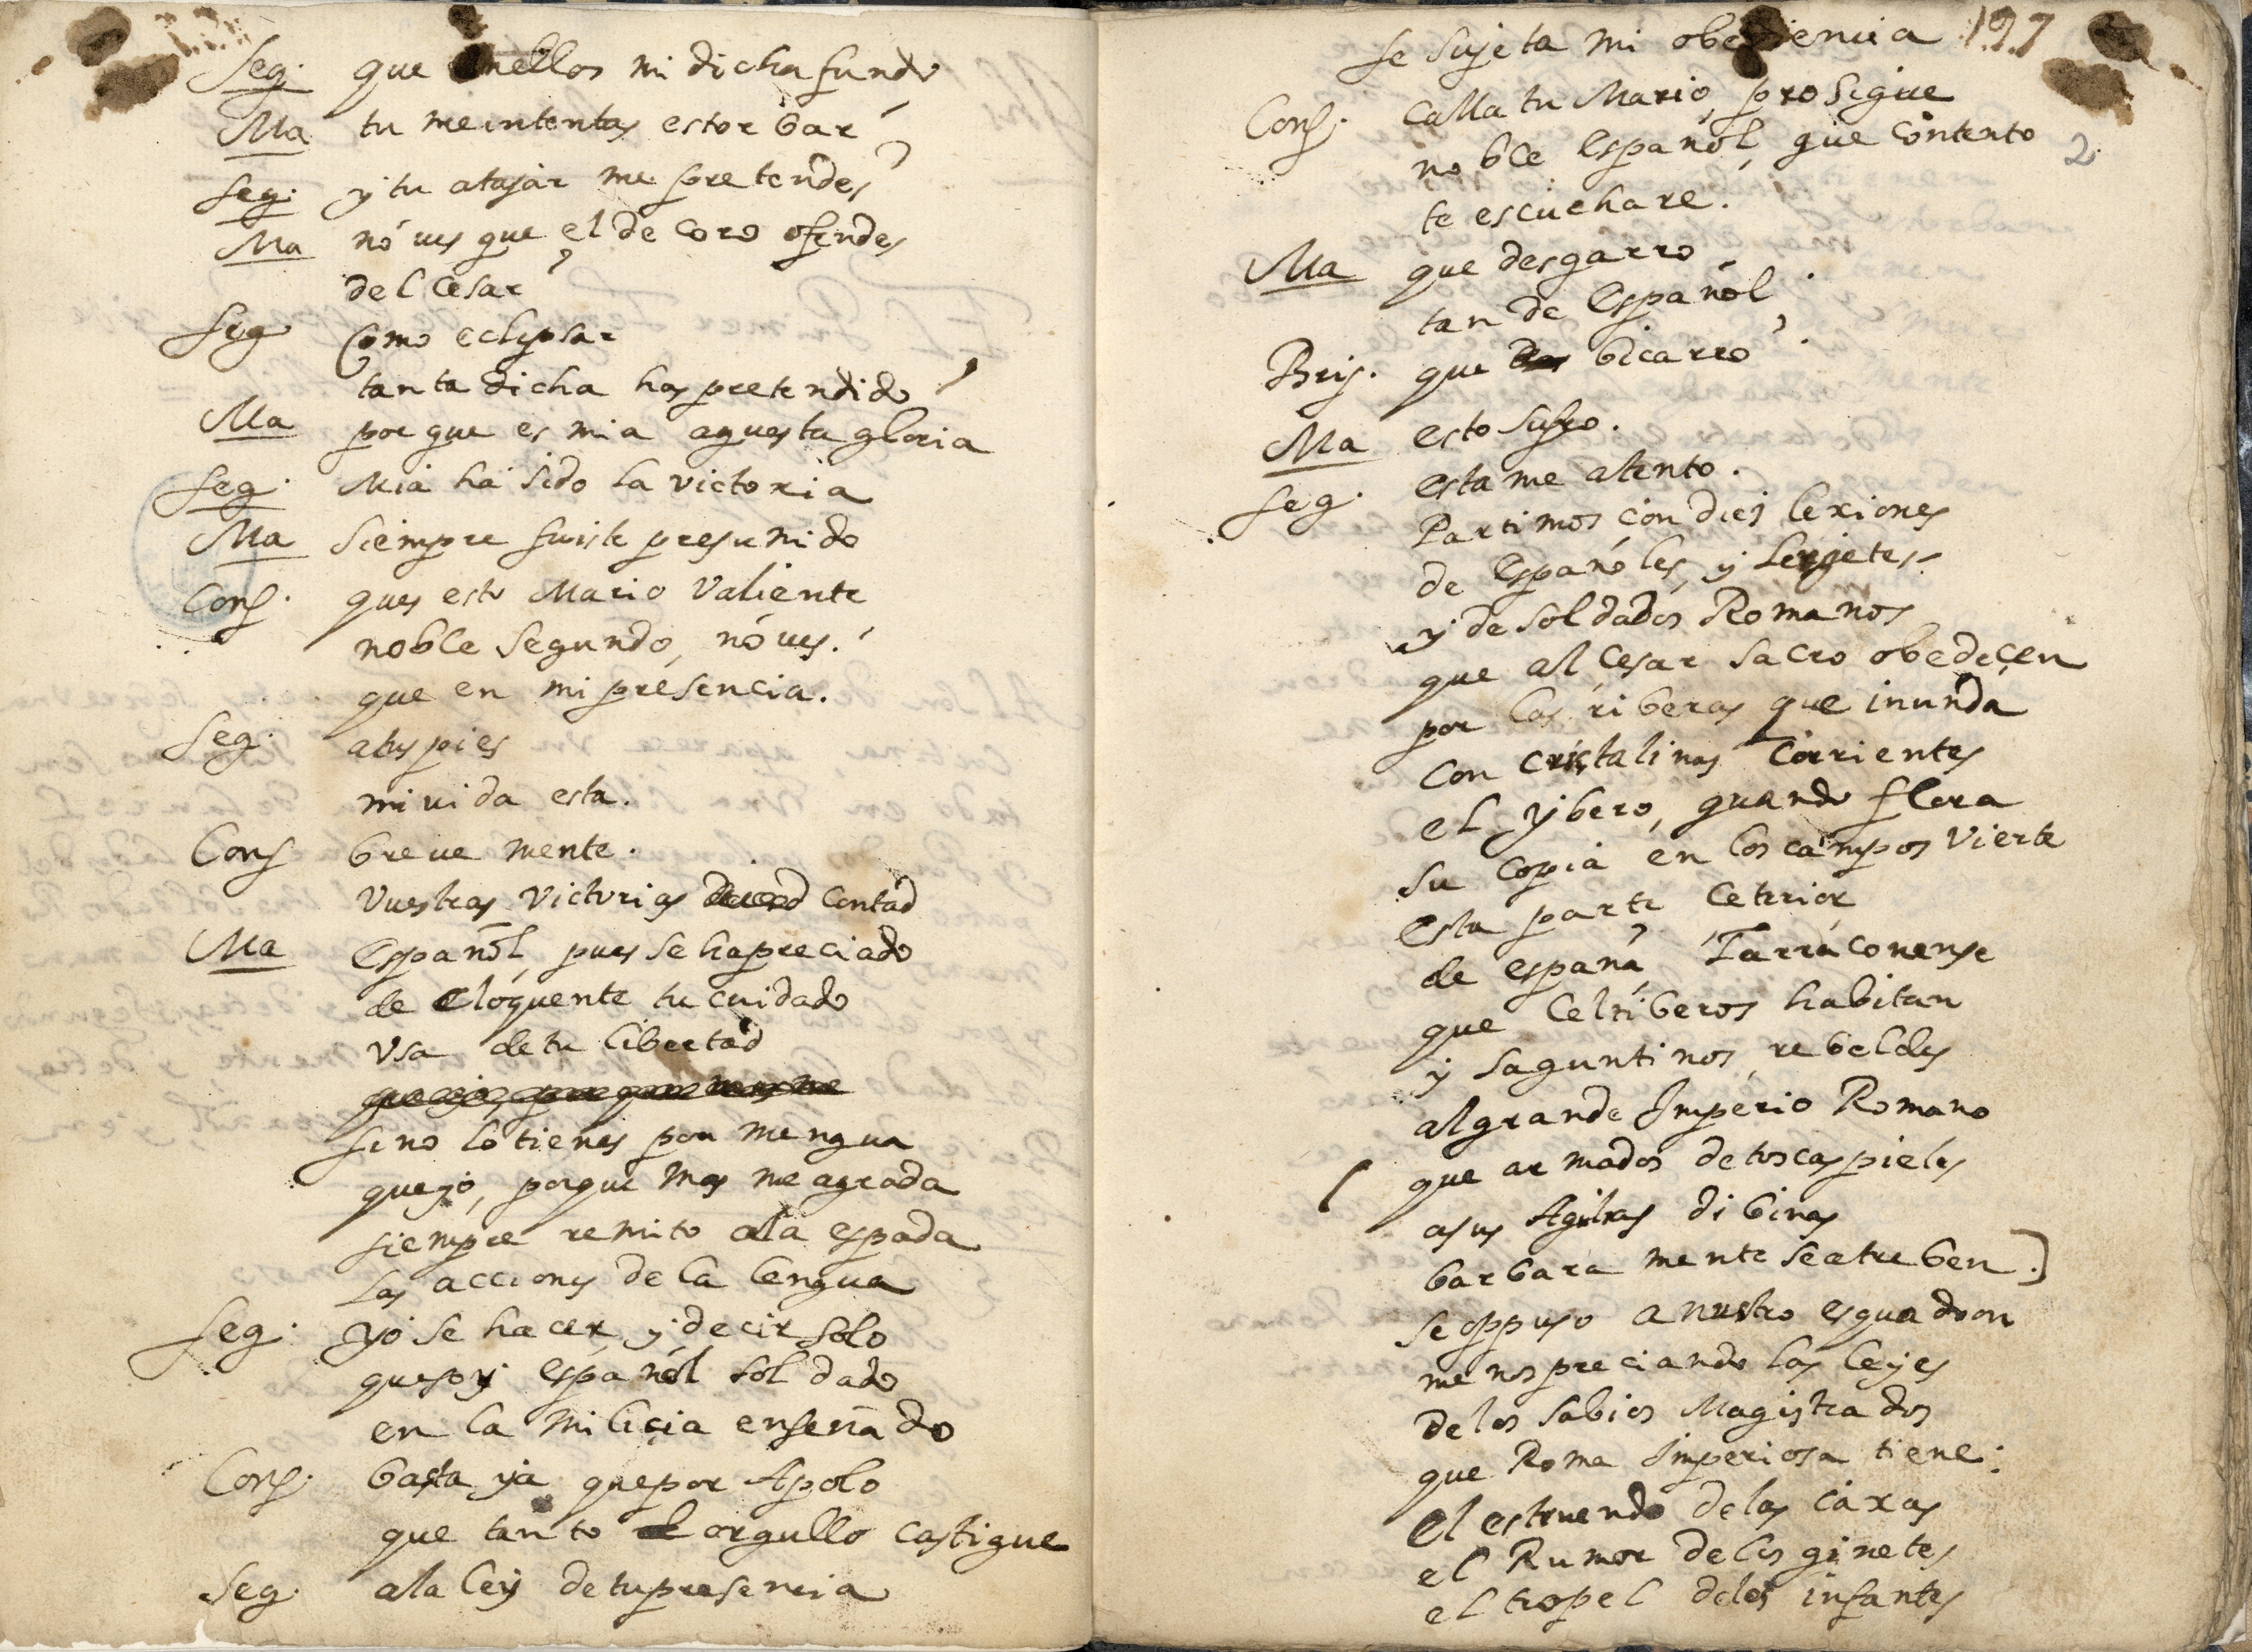 Seg. que enellos mi dicha fundo
Ma tu me intentas estorbar
Seg. y tu atajar me pretendes?
Ma nó ues que el de coro ofendes
del Cesar?
Seg Como eclypsar
tanta dicha has pretendido?
Ma porque es mia aquesta gloria
Seg. Mia ha sido la victoria
Ma Siempre fuiste presumido
Cons. ques esto Mario Valiente
noble Segundo, nó ues.
que en mi presencia.
Seg. atus pies
mi uida esta.
Cons breue mente.
Vuestras Victorias contad
Ma Español, pues se ha preciado
de eloquente tu cuidado
Vsa de tu libertad
sino lo tienes por mengua
que yo, porque mas me agrada
siempre remito ala espada
las acciones de la lengua
Seg. yo se hacer, y decir solo
que soy español soldado
en la milicia enseñado
Cons. basta ya que por Apolo
que tanto orgullo castigue
Seg. ala ley de tu presencia
se sujeta mi obediencia 197
Cons. calla tu Mario, prosigue
noble español, que contento 2
te escuchare.
Ma que desgarro
tan de Español.
Bris. que bicarro?
Ma esto sufro.
Seg. esta me atento.
Partimos con diez lexiones
de Españoles, y Lerjetes
y de soldados Romanos
que al Cesar sacro obedeçen
por las riberas que inunda
con cristalinas corrientes
el ybero, quando flora
su copia en los campos vierte
Esta parte Ceterior
de españa, Tarraconense
que Celtiberos habitan
y saguntinos, rebeldes
al grande Imperio Romano
( que armados de toscas pieles
asus Aguilas dibinas
barbara mente se atreben.]
se oppuso a nustro esquadron
menos preciando las leyes
de los sabios Magistrados
que Roma Imperiosa tiene:
El estruendo de las caxas
el Rumor de los ginetes
el tropel de los infantes